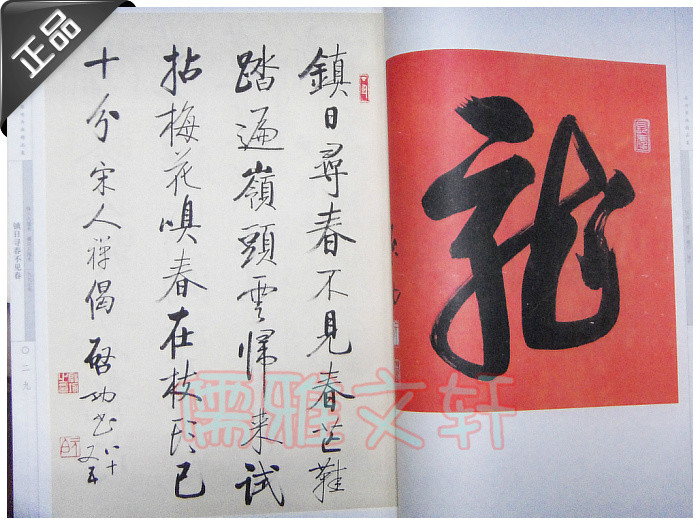 正品
鎮日尋春不見春芒鞋
踏遍嶺頭雲歸来試
拈梅花嗅春在枝頭已
十分宋人禅偈啓功书
八十又五
镇日寻春不见春
〇二九
龍
儒雅文轩